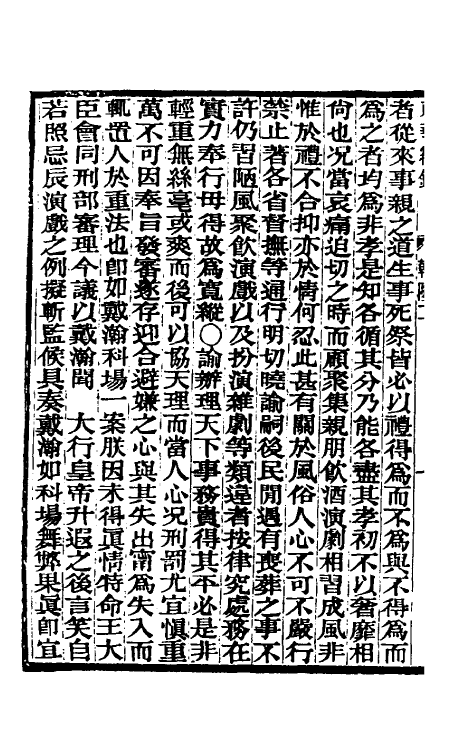 者從來事親之道生事死祭皆必以禮得爲而不爲與不得爲而
爲之者均爲非孝是知各循其分乃能各盡其孝初不以奢靡相
尙也况當哀痛迫切之時而顧聚集親朋飲酒演劇相習成風非
惟於禮不合抑亦於情何忍此甚有關於風俗人心不可不嚴行
禁止著各省督撫等通行明切曉諭嗣後民閒遇有喪葬之事不
許仍習陋風聚飲演戲以及扮演雜劇等類違者按律究處務在
實力奉行毋得故爲寬縱〇諭辦理天下事務貴得其平必是非
輕重無絲毫或爽而後可以協天理而當人心况刑罰尤宜愼重
萬不可因奉旨發審遂存迎合避嫌之心與其失出甯爲失入而
輒置人於重法也卽如戴瀚科場一案朕因未得眞情特命王大
臣會同刑部審理今議以戴瀚聞 大行皇帝升遐之後言笑自
若照忌辰演戲之例擬斬監候具奏戴瀚如科場舞弊果眞卽宜